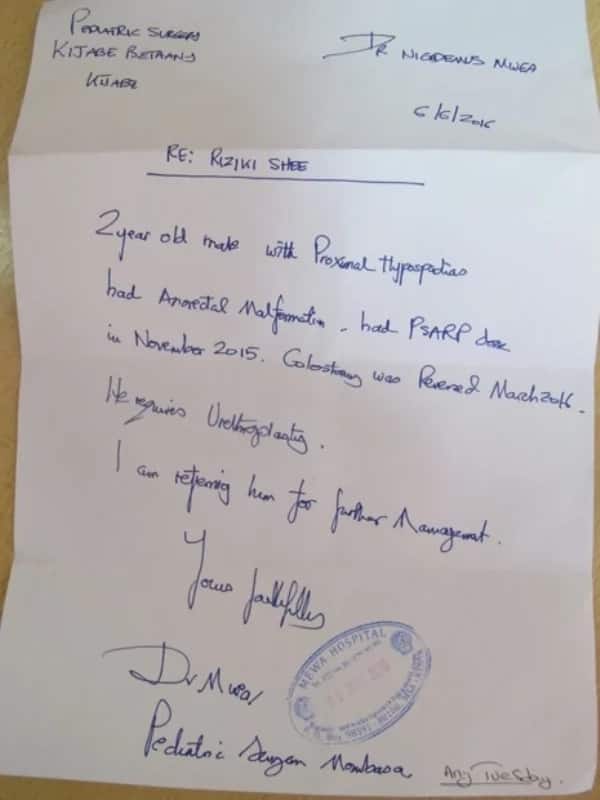 PEDIATRIC SURGERY
KIJABE BETHANY
KIJABE
DR NICODEMUS MWEA
6/6/2016
RE: RIZIKI SHEE
2 year old male with Proximal Hypospadias
had Anorectal Malformation. had PSARP done
in November 2015. Colostomy was Reversed March 2016.
He requires Urethroplasty.
I am referring him for further Management.
Yours faithfully
Dr Mwea
Pediatric Surgeon Mombasa
MEWA HOSPITAL
Any Tuesday.